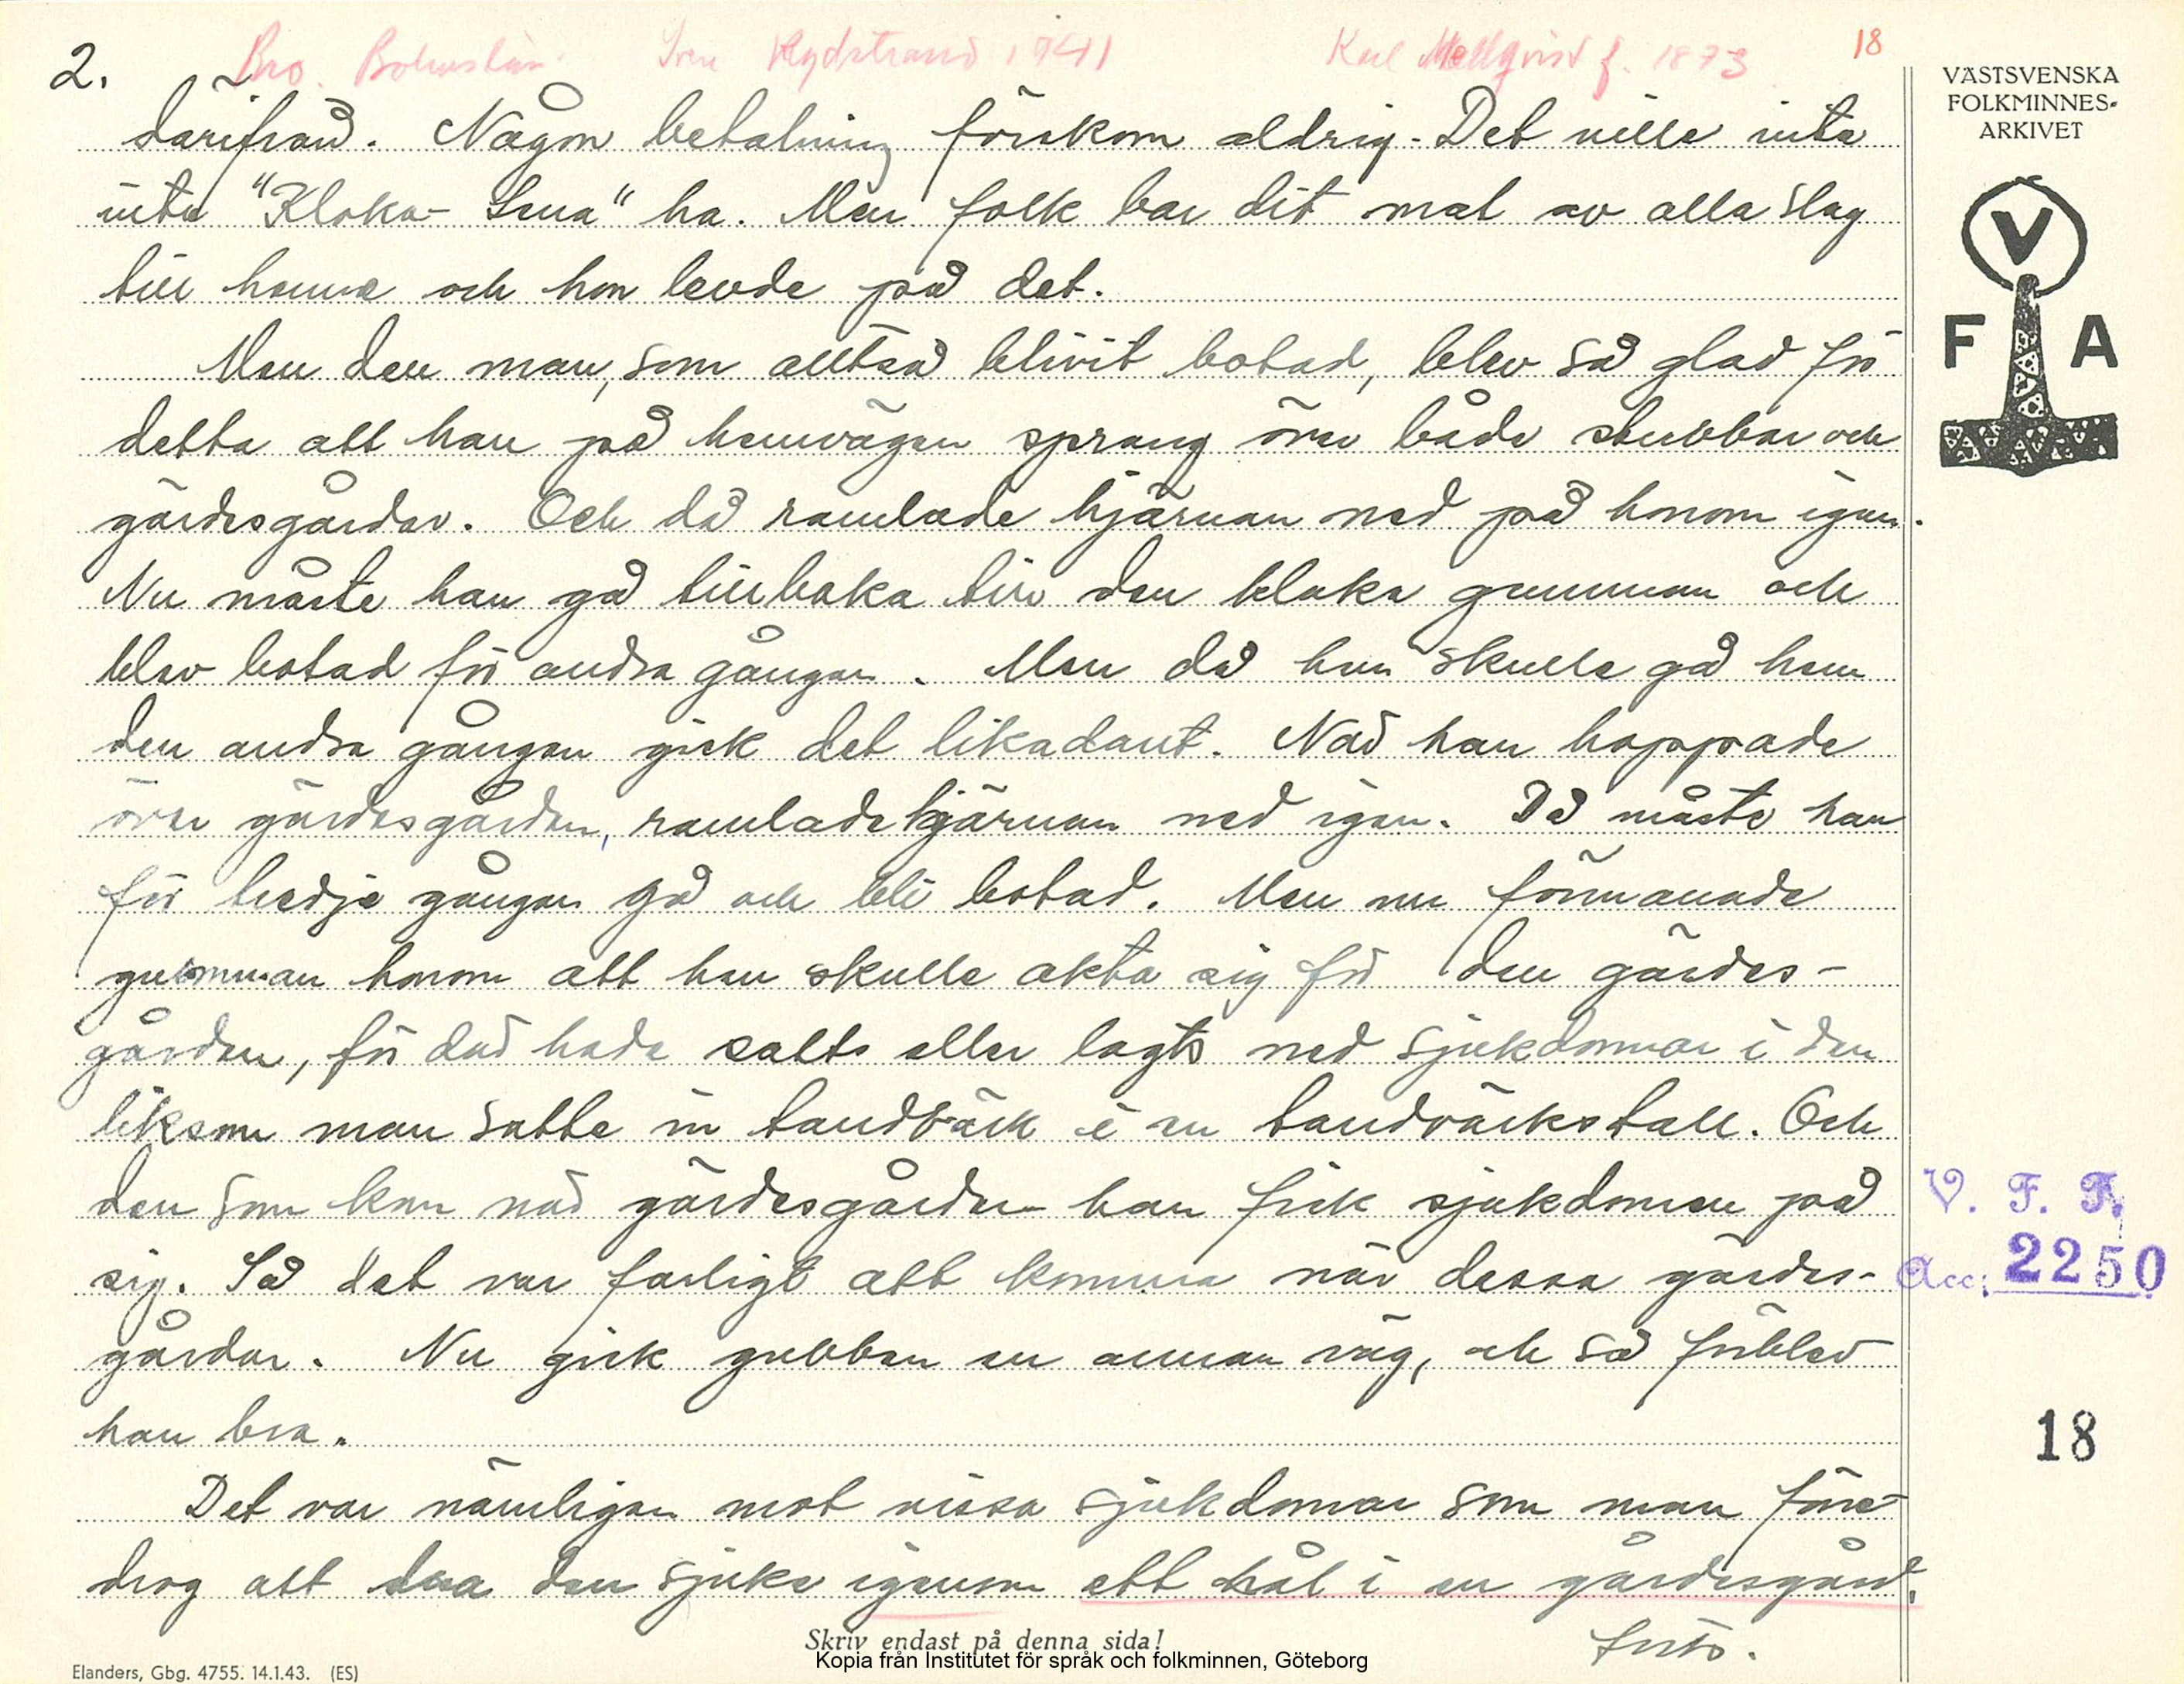 2. Bro. Bohuslän. Sven Rydstrand 1941 Karl Mellqvist f. 1873 18
därifrån. Någon betalning förekom aldrig. Det ville inte
inte "Kloka-Lena" ha. Men folk bar dit mat av alla slag
till henne och hon levde på det.
Men den man, som alltså blivit botad, blev så glad för
detta att han på hemvägen sprang över både stubbar och
gärdesgårdar. Och då ramlade hjärnan ned på honom igen.
Nu måste han gå tillbaka till den kloka gumman och
blev botad för andra gången. Men då han skulle gå hem
den andra gången gick det likadant. När han hoppade
över gärdesgården, ramlade hjärnan ned igen. Då måste han
för tredje gången gå och bli botad. Men nu förmanade
gumman honom att han skulle akta sig för den gärdes-
gården, för där hade satts eller lagts ned sjukdomar i den
liksom man satte in tandvärk i en tandvärkstall. Och
den som kom när gärdesgården han fick sjukdomen på
sig. Så det var farligt att komma när dessa gärdes-
gårdar. Nu gick gubben en annan väg, och så förblev
han bra.
Det var nämligen mot vissa sjukdomar som man före-
drog att draa den sjuke igenom ett hål i en gärdesgård.
forts.
Skriv endast på denna sida!
Kopia från Institutet för språk och folkminnen, Göteborg
Elanders, Gbg. 4755. 14.1.43. (ES)
VÄSTSVENSKA
FOLKMINNES-
ARKIVET
V
F A
V. F. F.
Acc: 2250
18